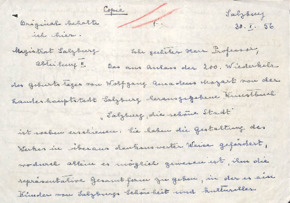 Copie
Original behalte
ich hier.
1.
Salzburg
20. I. 56
Magistrat Salzburg
Abteilung
Sehr geehrter Herr Professor,
Das aus Anlass der 200. Wiederkehr
des Geburtstages von Wolfgang Amadeus Mozart von der
Landeshauptstadt Salzburg herausgegebene Kunstbuch
"Salzburg, die schöne Stadt"
ist soeben erschienen. Sie haben die Gestaltung des
Werkes in überaus dankenswerter Weise gefördert,
wodurch allein es möglich gewesen ist, ihm die
repräsentative Gesamtform zu geben, in der es nun
Künden von Salzburgs Schönheit und kultureller